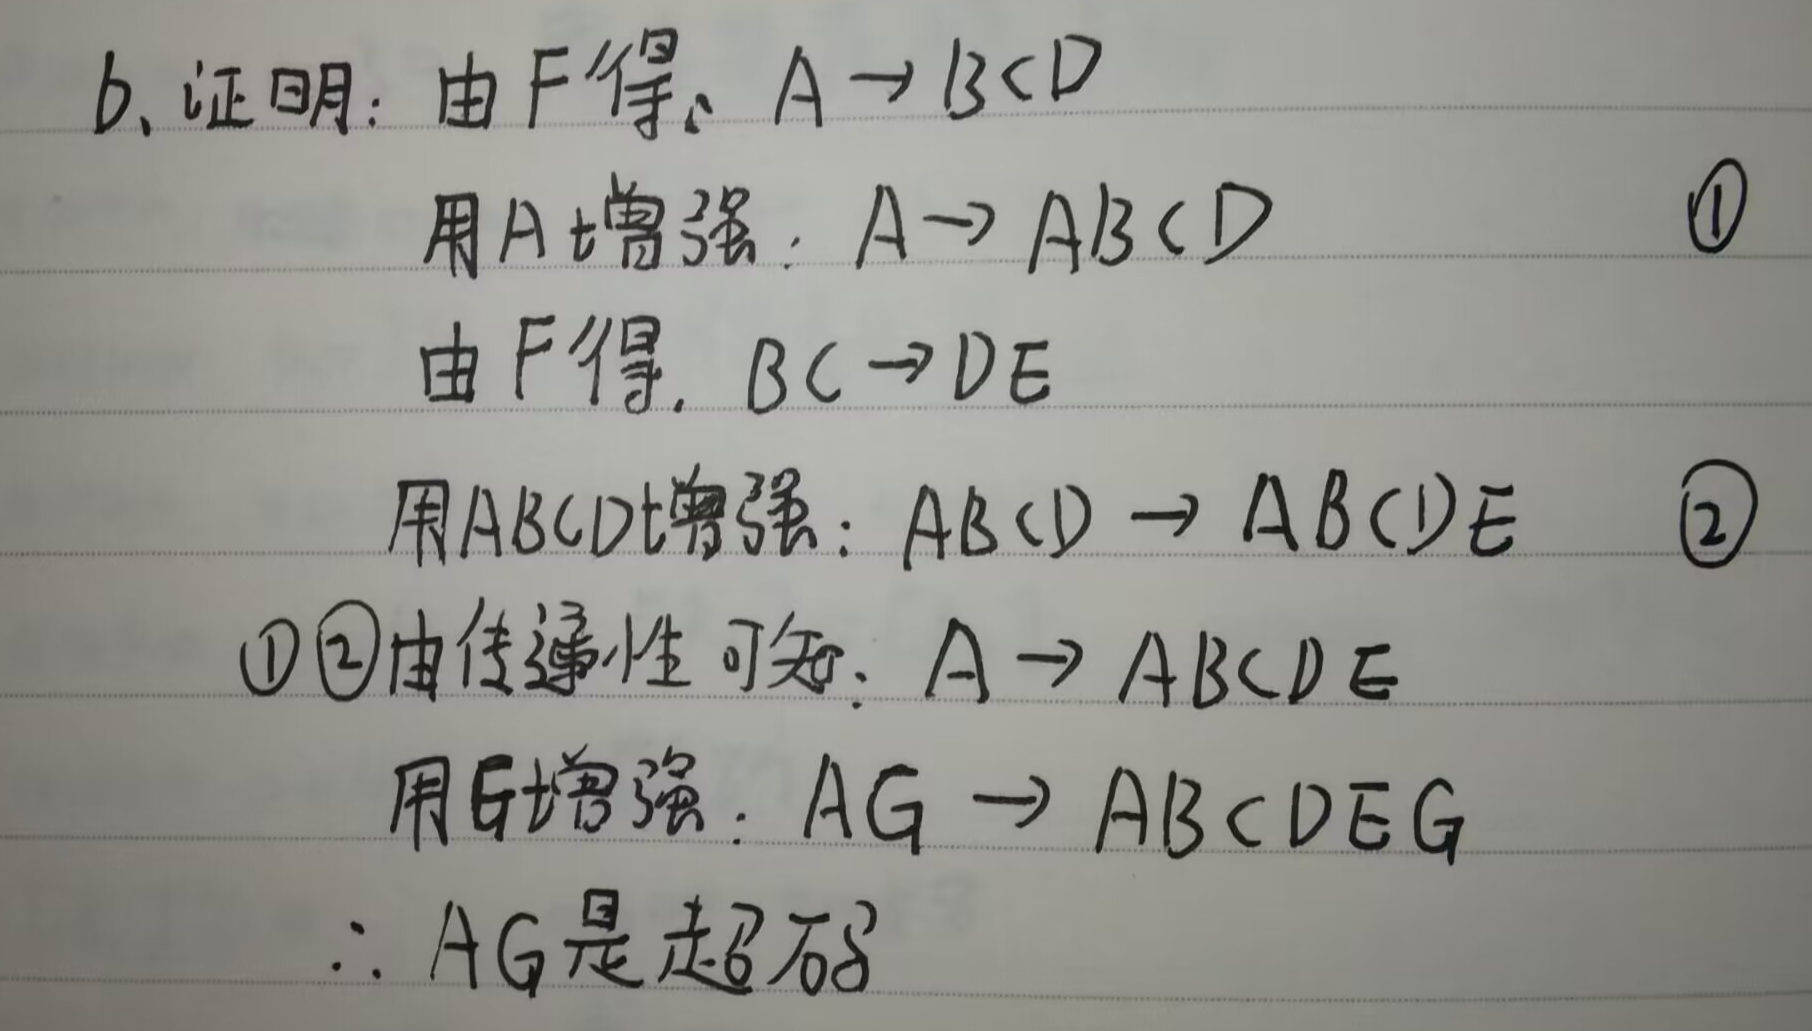 b、证明：由F得、A→BCD
用A增强：A→ABCD ①
由F得．BC→DE
用ABCD增强：ABCD→ABCDE ②
①②由传递性可知：A→ABCDE
用G增强：AG→ABCDEG
∴AG是超码